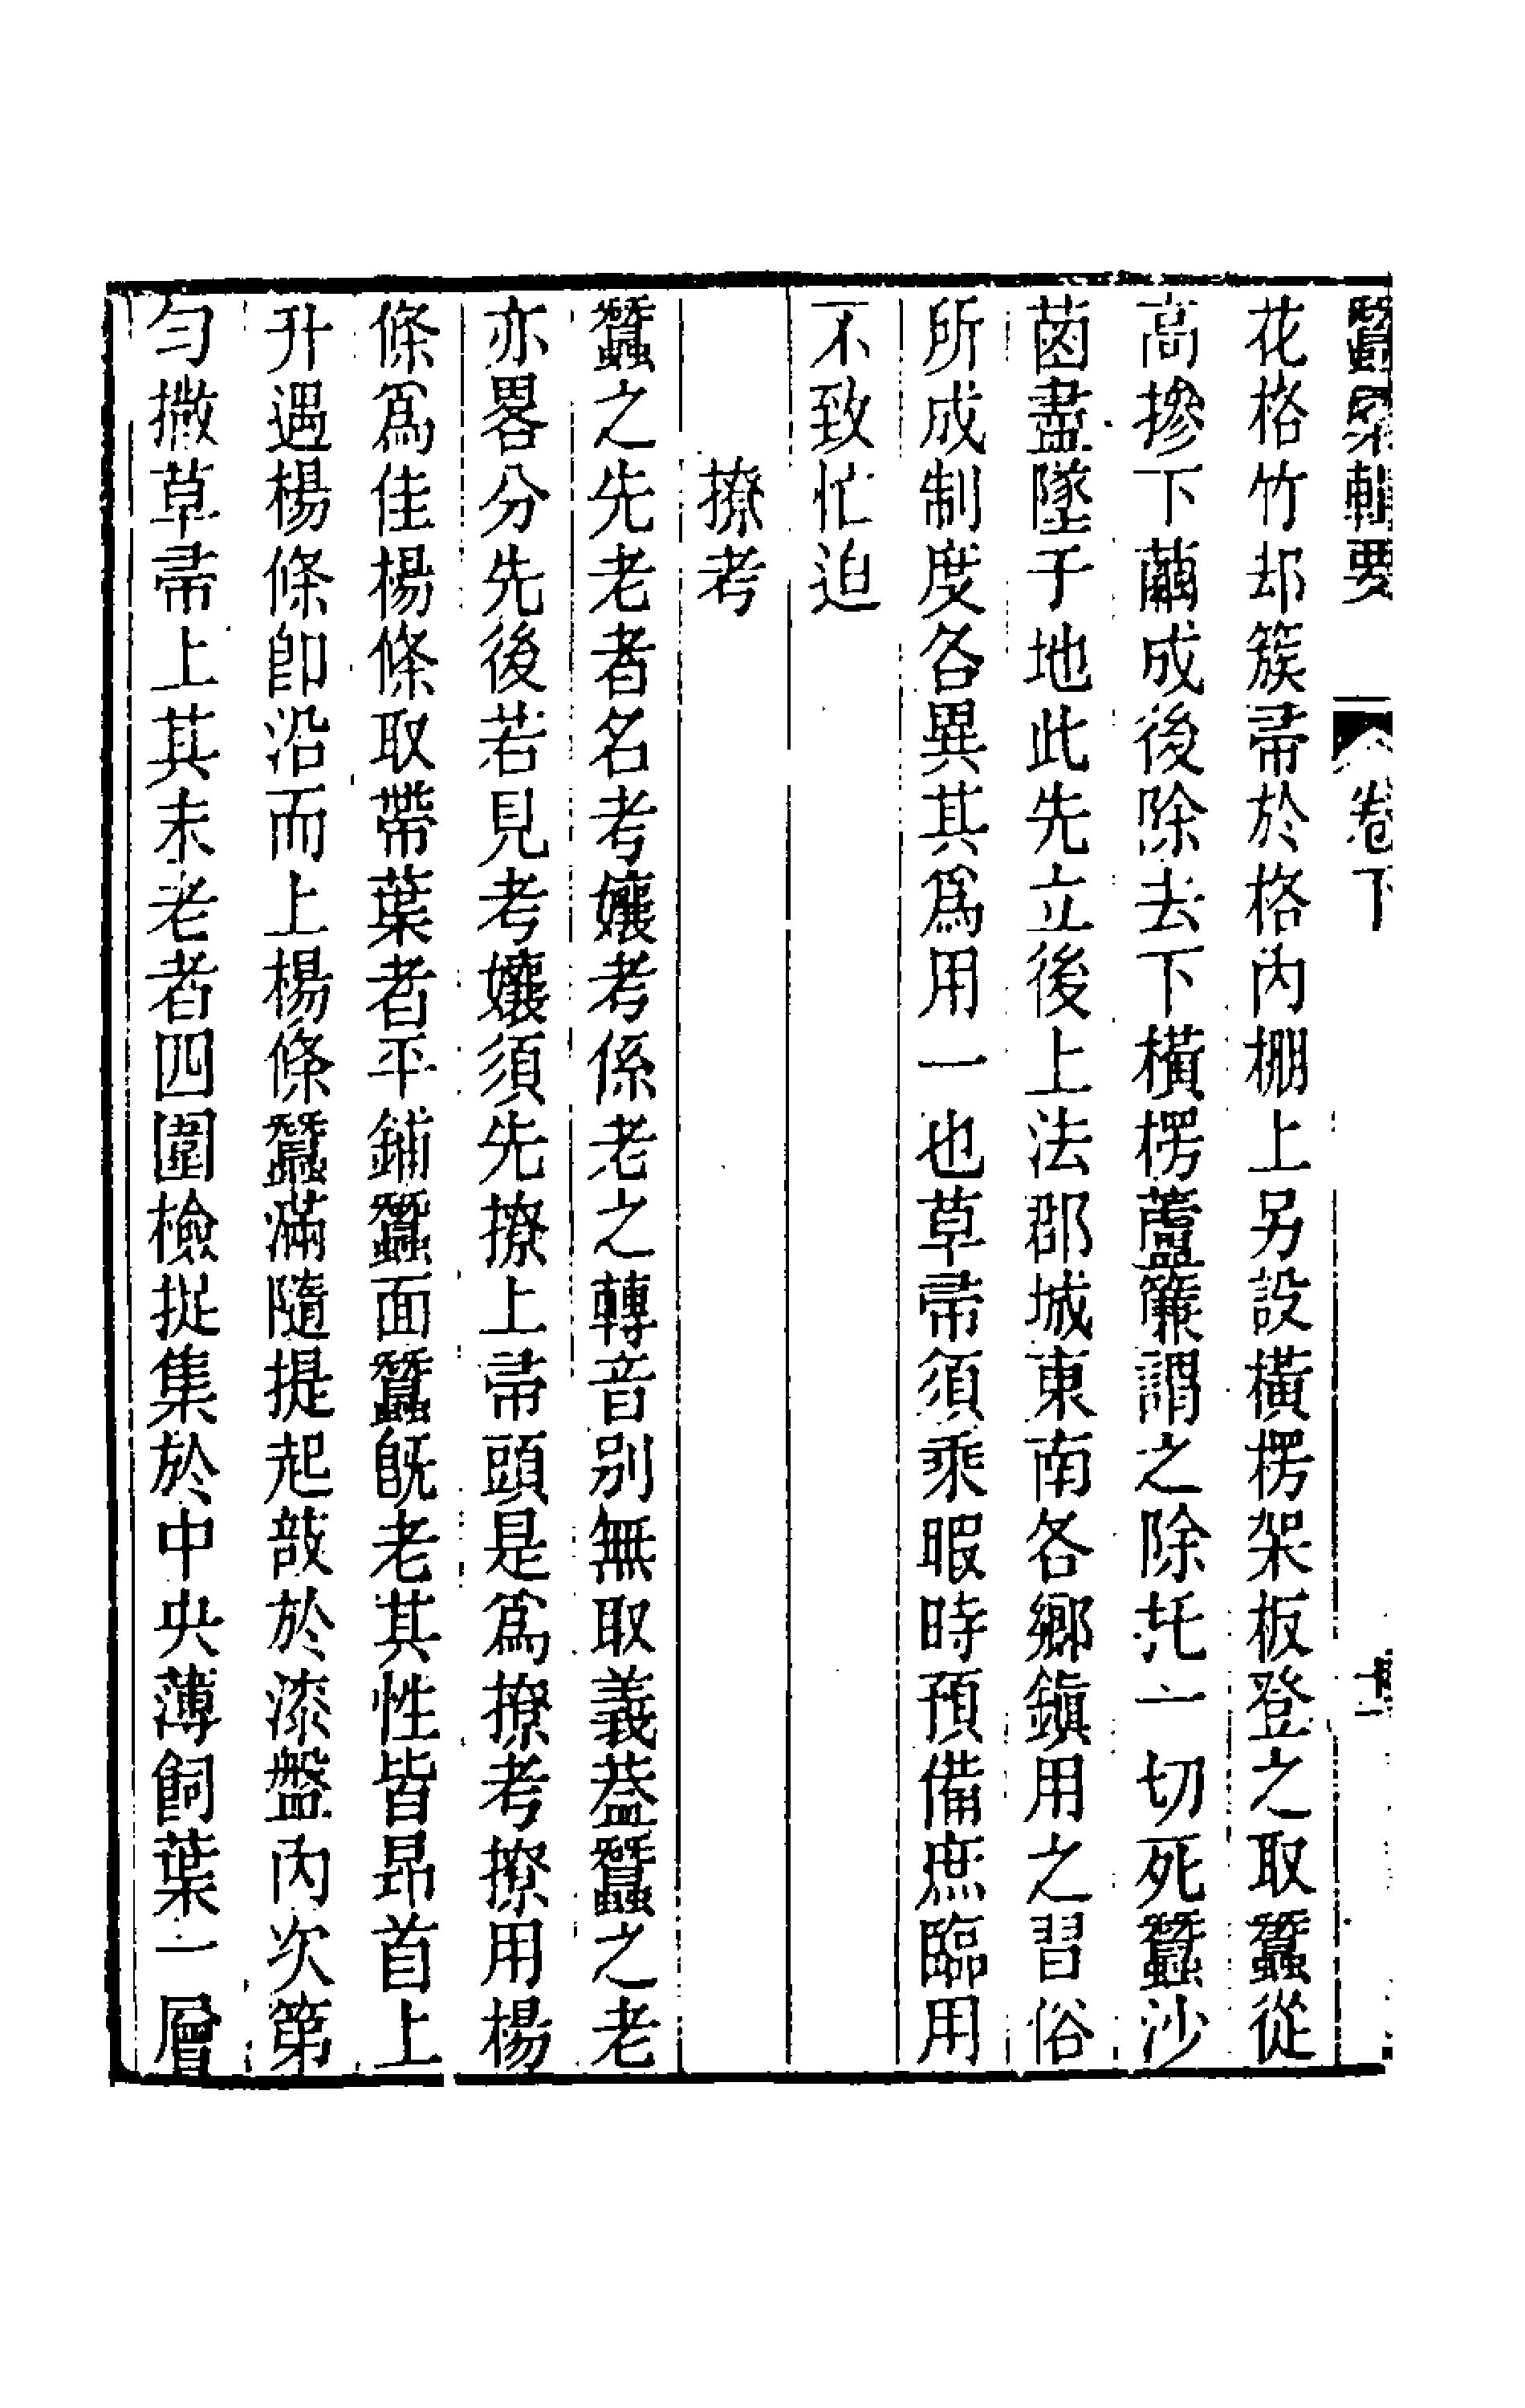 蠶桑輯要 卷下
花格竹却簇帚於格內棚上另設橫楞架板登之取蠶從
高摻下繭成後除去下橫楞蘆簾謂之除托一切死蠶沙
茵盡墜于地此先立後上法郡城東南各鄉鎮用之習俗
所成制度各異其爲用一也草帚須乘暇時預備庶臨用
不致忙迫
撩考
蠶之先老者名考孃考係老之轉音別無取義葢蠶之老
亦畧分先後若見考孃須先撩上帚頭是爲撩考撩用楊
條爲佳楊條取帶葉者平鋪蠶面蠶旣老其性皆昂首上
升遇楊條卽沿而上楊條蠶滿隨提起敲於漆盤內次第
勻撒草帚上其未老者四圍檢捉集於中央薄飼葉一層